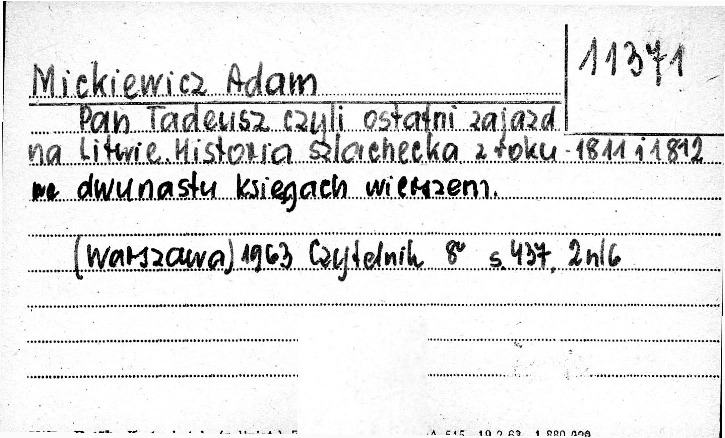 11371
Mickiewicz Adam
Pan Tadeusz czyli ostatni zajazd
na Litwie. Historia szlachecka z roku 1811 i 1812
we dwunastu księgach wierszem.
(Warszawa) 1963 Czytelnik 8° s. 437, 2nlb